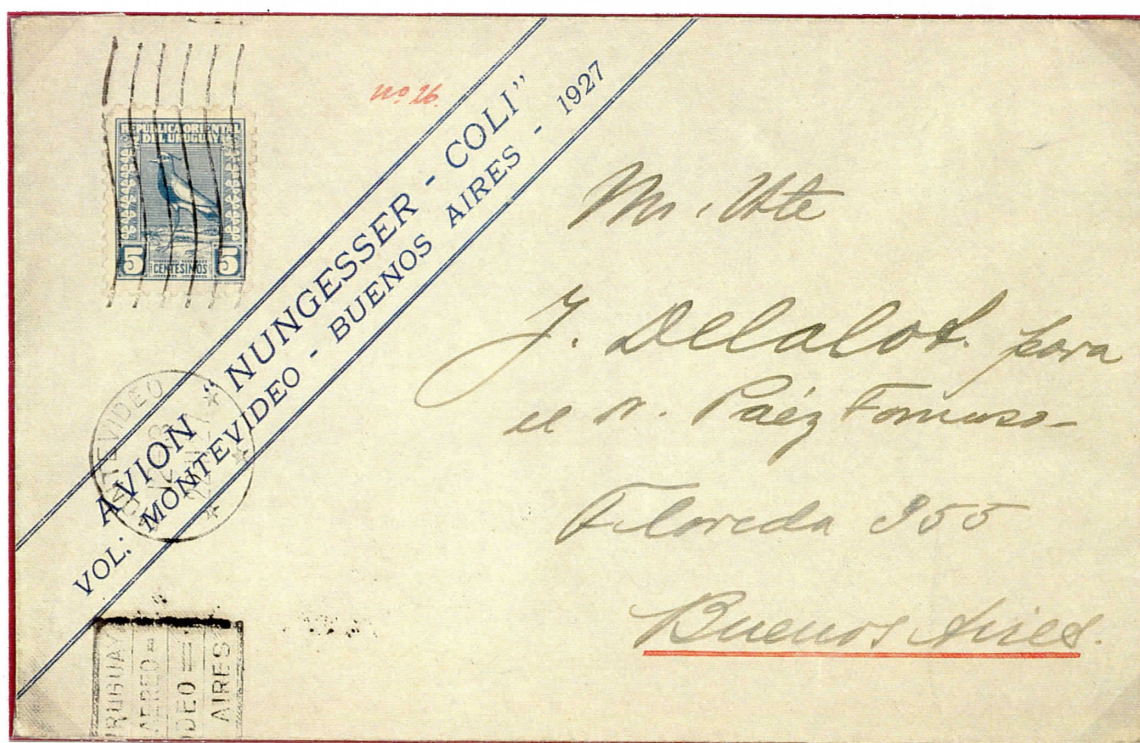 nº 26.
REPUBLICA ORIENTAL
DEL URUGUAY
5 CENTESIMOS 5
AVION "NUNGESSER - COLI"
VOL: MONTEVIDEO - BUENOS AIRES - 1927
MONTEVIDEO
Mr. Ute
J. Delalot. para
el Sr. Paéz Formoso-
Floreda 955
Buenos Aires.
URUGUAY
AEREO
DEO
AIRES